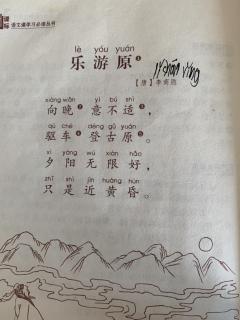 语文课学习必读丛书
lè yóu yuán
乐游原①
lǐ shāng yǐng
【唐】李商隐
xiàng wǎn yì bú shì
向晚②意不适③，
qū chē dēng gǔ yuán
驱车④登古原⑤。
xī yáng wú xiàn hǎo
夕阳无限好，
zhǐ shì jìn huáng hūn
只是近黄昏。